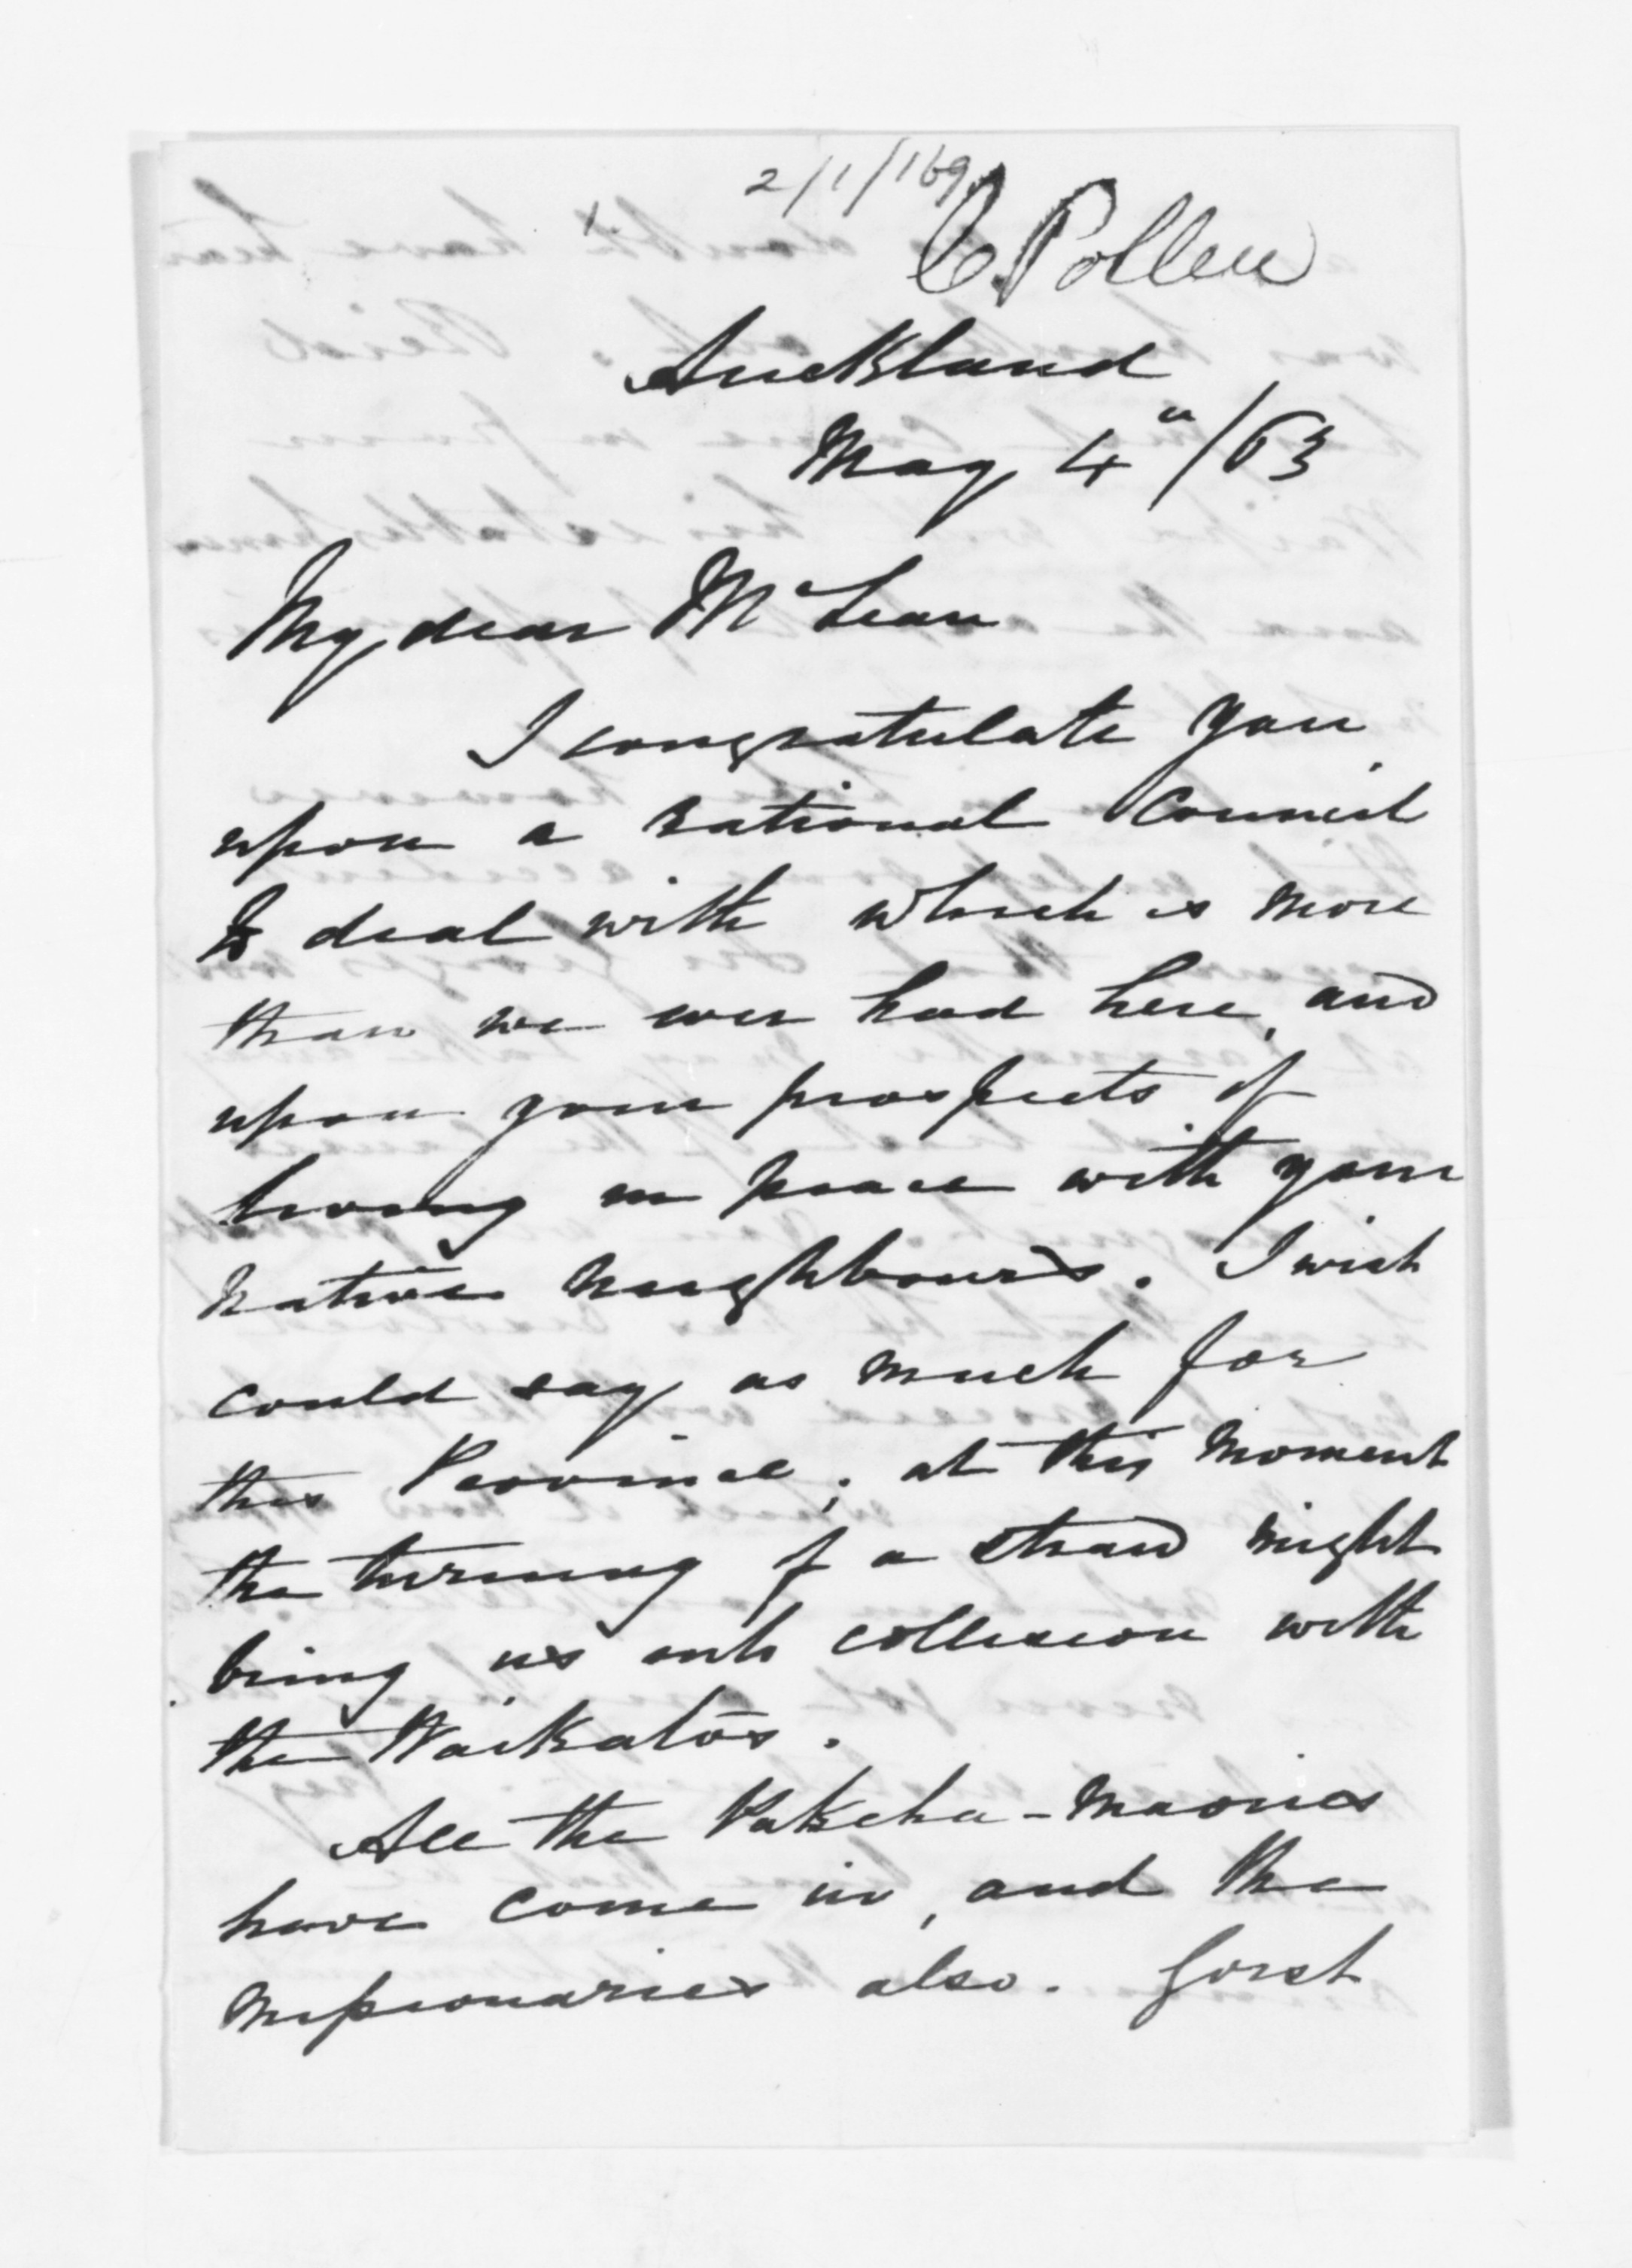 2/1/169
Pollen
Auckland
May 4"/63
My dear McLean
I congratulate you
upon a rational Council
to deal with which is more
than we ever had here, and
upon your prospects of
living in peace with your
native neighbours. I wish
could say as much for
this Province; at this moment
the turning of a straw might
bring us into collision with
the Waikatos.
All the Pakeha-Maories
have come in, and the
missionaries also. Gorst